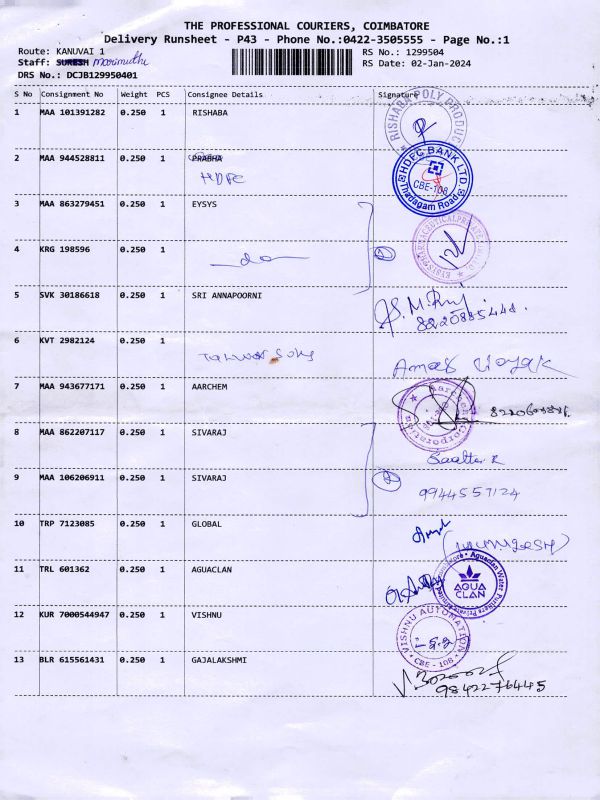 THE PROFESSIONAL COURIERS, COIMBATORE
Delivery Runsheet - P43 - Phone No.:0422-3505555 - Page No.:1
Route: KANUVAI 1 RS No.: 1299504
Staff: SURESH Marimuthu RS Date: 02-Jan-2024
DRS No.: DCJB129950401
S No Consignment No Weight PCS Consignee Details Signature
1 MAA 101391282 0.250 1 RISHABA
RISHABA POLY PRODUC
2 MAA 944528811 0.250 1 PRABHA
HDFC
HDFC BANK LTD.
CBE-108
Thadagam Road
3 MAA 863279451 0.250 1 EYSYS
4 KRG 198596 0.250 1
do
2
5 SVK 30186618 0.250 1 SRI ANNAPOORNI
8220885444.
6 KVT 2982124 0.250 1
7 MAA 943677171 0.250 1 AARCHEM
Aarchem Corporation
8 MAA 862207117 0.250 1 SIVARAJ
9 MAA 106206911 0.250 1 SIVARAJ
2
9944557124
10 TRP 7123085 0.250 1 GLOBAL
11 TRL 601362 0.250 1 AGUACLAN
Aguaclan Water Purifiers Private Limited
AGUA
CLAN
12 KUR 7000544947 0.250 1 VISHNU
VISHNU AUTOMATION
CBE - 108
13 BLR 615561431 0.250 1 GAJALAKSHMI
9842276445